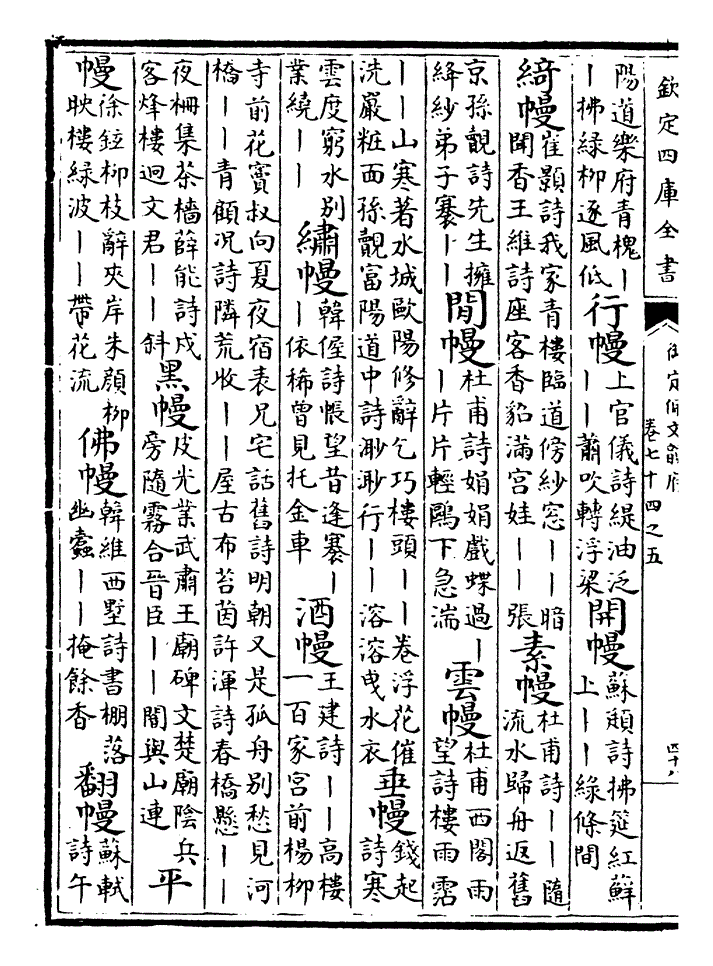 欽定四庫全書
御定佩文韻府
卷七十四之五
四十八
陽道樂府青槐｜
｜拂緑柳逐風低
行幔
上官儀詩緹油泛
｜｜蕭吹轉浮梁
開幔
蘇頲詩拂筵紅蘚
上｜｜綠條間
綺幔
崔顥詩我家青樓臨道傍紗窓｜｜暗
聞香王維詩座客香貂滿宫娃｜｜張
素幔
杜甫詩｜｜隨
流水歸舟返舊
京孫覿詩先生擁
絳紗弟子褰｜｜
閒幔
杜甫詩娟娟戲蝶過｜
｜片片輕鷗下急湍
雲幔
杜甫西閣雨
望詩樓雨霑
｜｜山寒著水城歐陽修辭乞巧樓頭｜｜卷浮花催
洗嚴粧面孫覿富陽道中詩渺渺行｜｜溶溶曵水衣
垂幔
錢起
詩寒
雲度窮水别
業繞｜｜
繡幔
韓偓詩悵望昔逢褰｜
｜依稀曾見托金車
酒幔
王建詩｜｜高樓
一百家宫前楊柳
寺前花竇叔向夏夜宿表兄宅話舊詩明朝又是孤舟别愁見河
橋｜｜青顧况詩隣荒收｜｜屋古布苔茵許渾詩春橋懸｜｜
夜栅集茶檣薛能詩戍
客烽樓迥文君｜｜斜
黑幔
皮光業武肅王廟碑文楚廟陰兵
旁隨霧合晉臣｜｜闇與山連
平
幔
徐鉉柳枝辭夾岸朱顔柳
映樓緑波｜｜帶花流
佛幔
韓維西墅詩書棚落
幽蠧｜｜掩餘香
翻幔
蘇軾
詩午